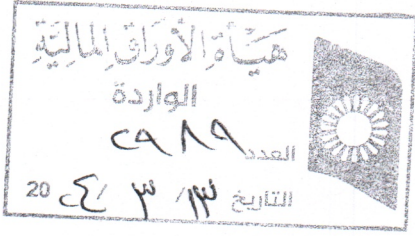 هَيْأَةُ الأَوْرَاقِ المَالِيَّةِ
الواردة
العدد ٢٩٨٩
التاريخ ١٣ / ٣ / ٢٤ 20